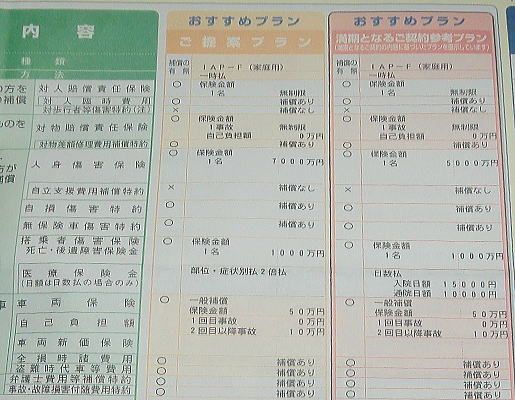 内容
種類
方法
の方を
の補償
対人賠償責任保険
対人臨時費用
対歩行者等傷害特約(注)
ものを
対物賠償責任保険
対物差額修理費用補償特約
方が
補償
人身傷害保険
自立支援費用補償特約
自損傷害特約
無保険車傷害特約
搭乗者傷害保険
死亡・後遺障害保険金
医療保険金
(日額は日数払の場合のみ)
車
車両保険
自己負担額
車両新価保険
全損時諸費用
盗難時代車等費用
弁護士費用等補償特約
事故・故障損害付随費用特約
おすすめプラン
ご提案プラン
補償の
有無
IAP-F(家庭用)
一時払
○ 保険金額
1名 無制限
○ 補償あり
× 補償なし
○ 保険金額
1事故 無制限
自己負担額 0万円
○ 補償あり
○ 保険金額
1名 7000万円
× 補償なし
○ 補償あり
○ 補償あり
○ 保険金額
1名 1000万円
部位・症状別払2倍払
○ 一般補償
保険金額 50万円
1回目事故 0万円
2回目以降事故 10万円
○ 補償あり
○ 補償あり
○ 補償あり
○ 補償あり
おすすめプラン
満期となるご契約参考プラン
(満期となるご契約の内容に基づいたプランを表示しています)
補償の
有無
IAP-F(家庭用)
一時払
○ 保険金額
1名 無制限
○ 補償あり
× 補償なし
○ 保険金額
1事故 無制限
自己負担額 0万円
○ 補償あり
○ 保険金額
1名 5000万円
× 補償なし
○ 補償あり
○ 補償あり
○ 保険金額
1名 1000万円
日数払
入院日額 15000円
通院日額 10000円
○ 一般補償
保険金額 50万円
1回目事故 0万円
2回目以降事故 10万円
○ 補償あり
○ 補償あり
○ 補償あり
○ 補償あり